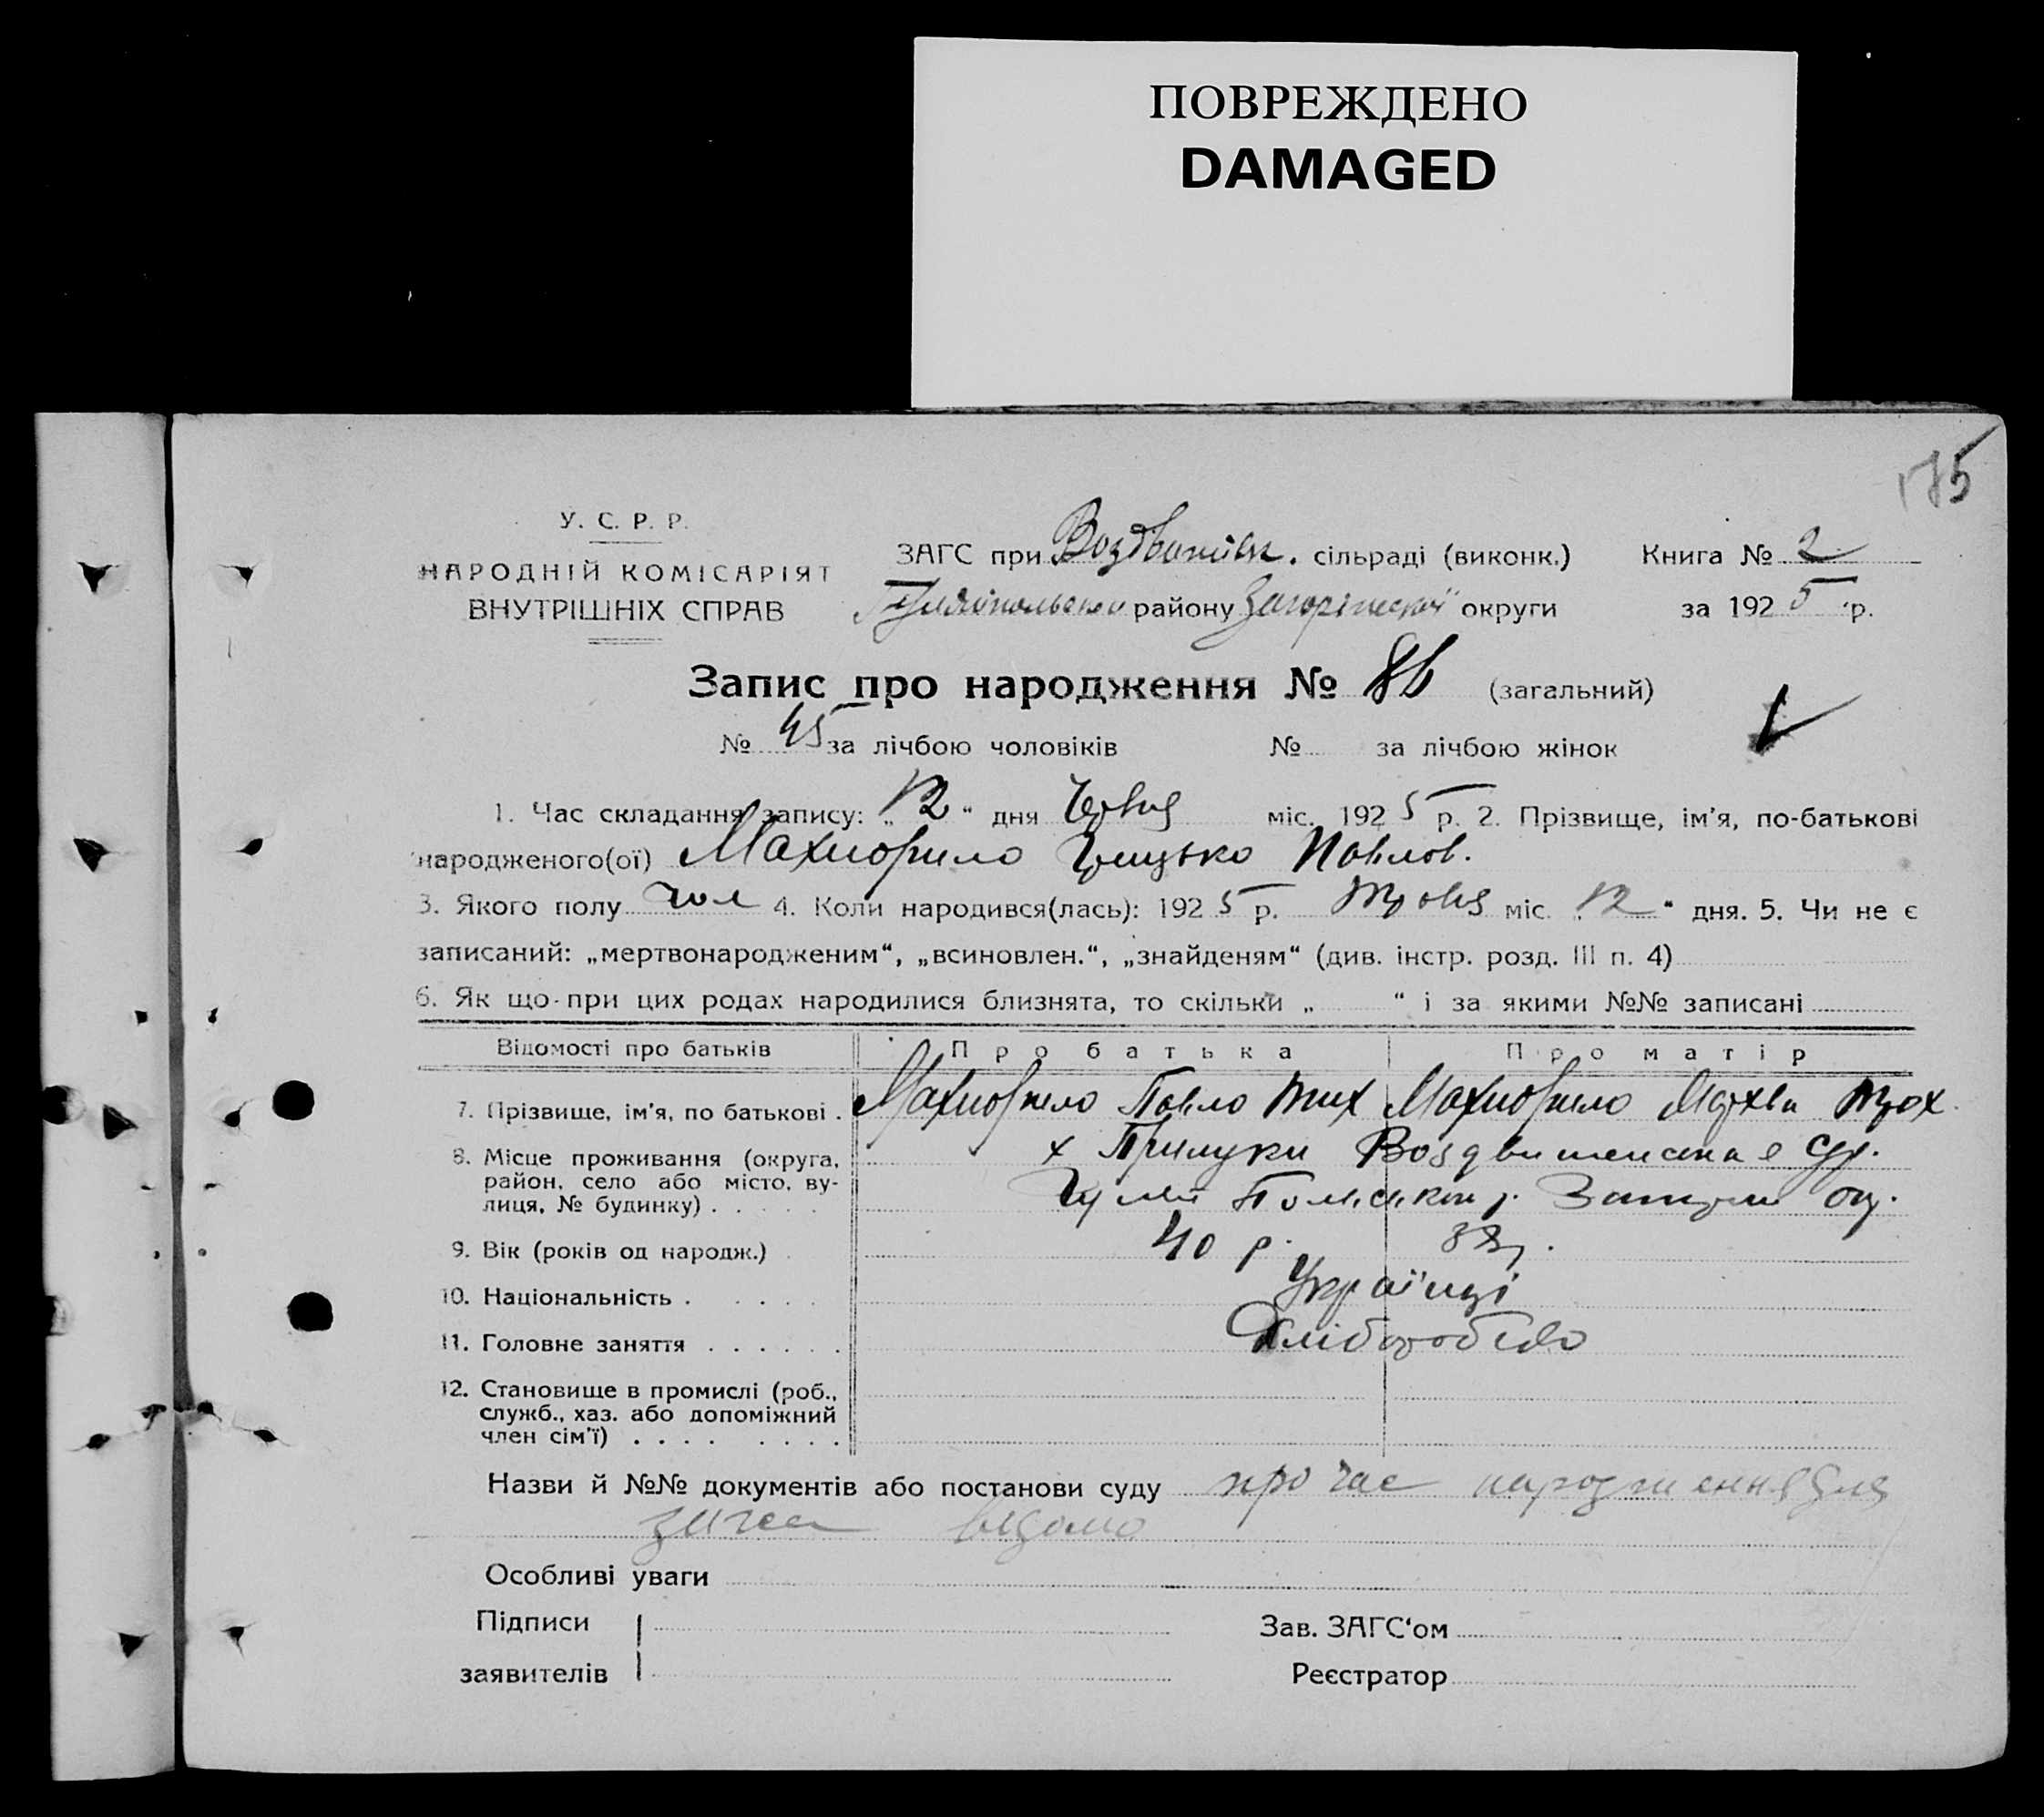 ПОВРЕЖДЕНО
DAMAGED
175
У. С. Р. Р.
НАРОДНІЙ КОМІСАРІЯТ
ВНУТРІШНІХ СПРАВ
ЗАГС при сільраді (виконк.) Книга № 2
району округи за 1925 р.
Запис про народження № 86 (загальний)
№ 45 за лічбою чоловіків № за лічбою жінок
1. Час складання запису: „12“ дня Червня міс. 1925 р. 2. Прізвище, ім'я, по-батькові
народженого(ої) Махиорило Грицько Павлов.
3. Якого полу чол 4. Коли народився(лась): 1925 р. Травня міс. „12“ дня. 5. Чи не є
записаний: „мертвонародженим“, „всиновлен.“, „знайденям“ (див. інстр. розд. III п. 4)
6. Як що при цих родах народилися близнята, то скільки „ “ і за якими №№ записані
Відомості про батьків Про батька Про матір
7. Прізвище, ім'я, по батькові . Махиорило Павло Тих Махиорило Трох
8. Місце проживання (округа, х Прилуки
район, село або місто, ву-
лиця, № будинку) . . . . .
9. Вік (років од народж.) 40 р. 38 р.
10. Національність . . . . . Українці
11. Головне заняття . . . . . . Хліборобство
12. Становище в промислі (роб.,
служб., хаз. або допоміжний
член сім'ї) . . . . . . . .
Назви й №№ документів або постанови суду про час народження для
загса відомо
Особливі уваги
Підписи Зав. ЗАГС'ом
заявителів Реєстратор